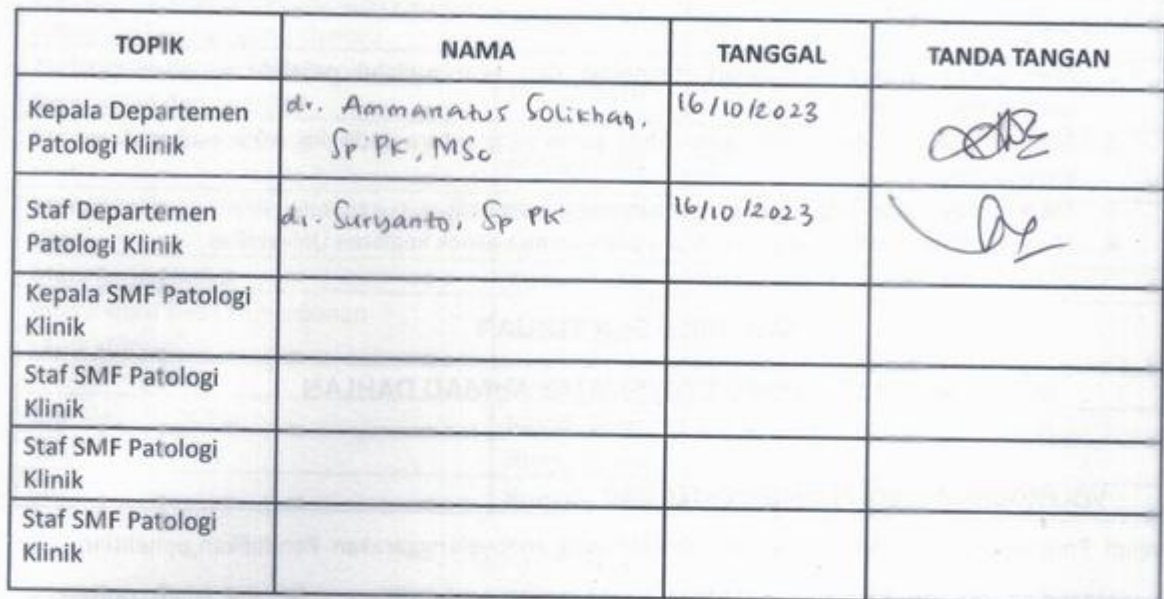 TOPIK NAMA TANGGAL TANDA TANGAN
Kepala Departemen
Patologi Klinik
dr. Ammanatus Solikhah,
Sp PK, MSc
16/10/2023
Staf Departemen
Patologi Klinik
dr. Suryanto, Sp PK
16/10/2023
Kepala SMF Patologi
Klinik
Staf SMF Patologi
Klinik
Staf SMF Patologi
Klinik
Staf SMF Patologi
Klinik